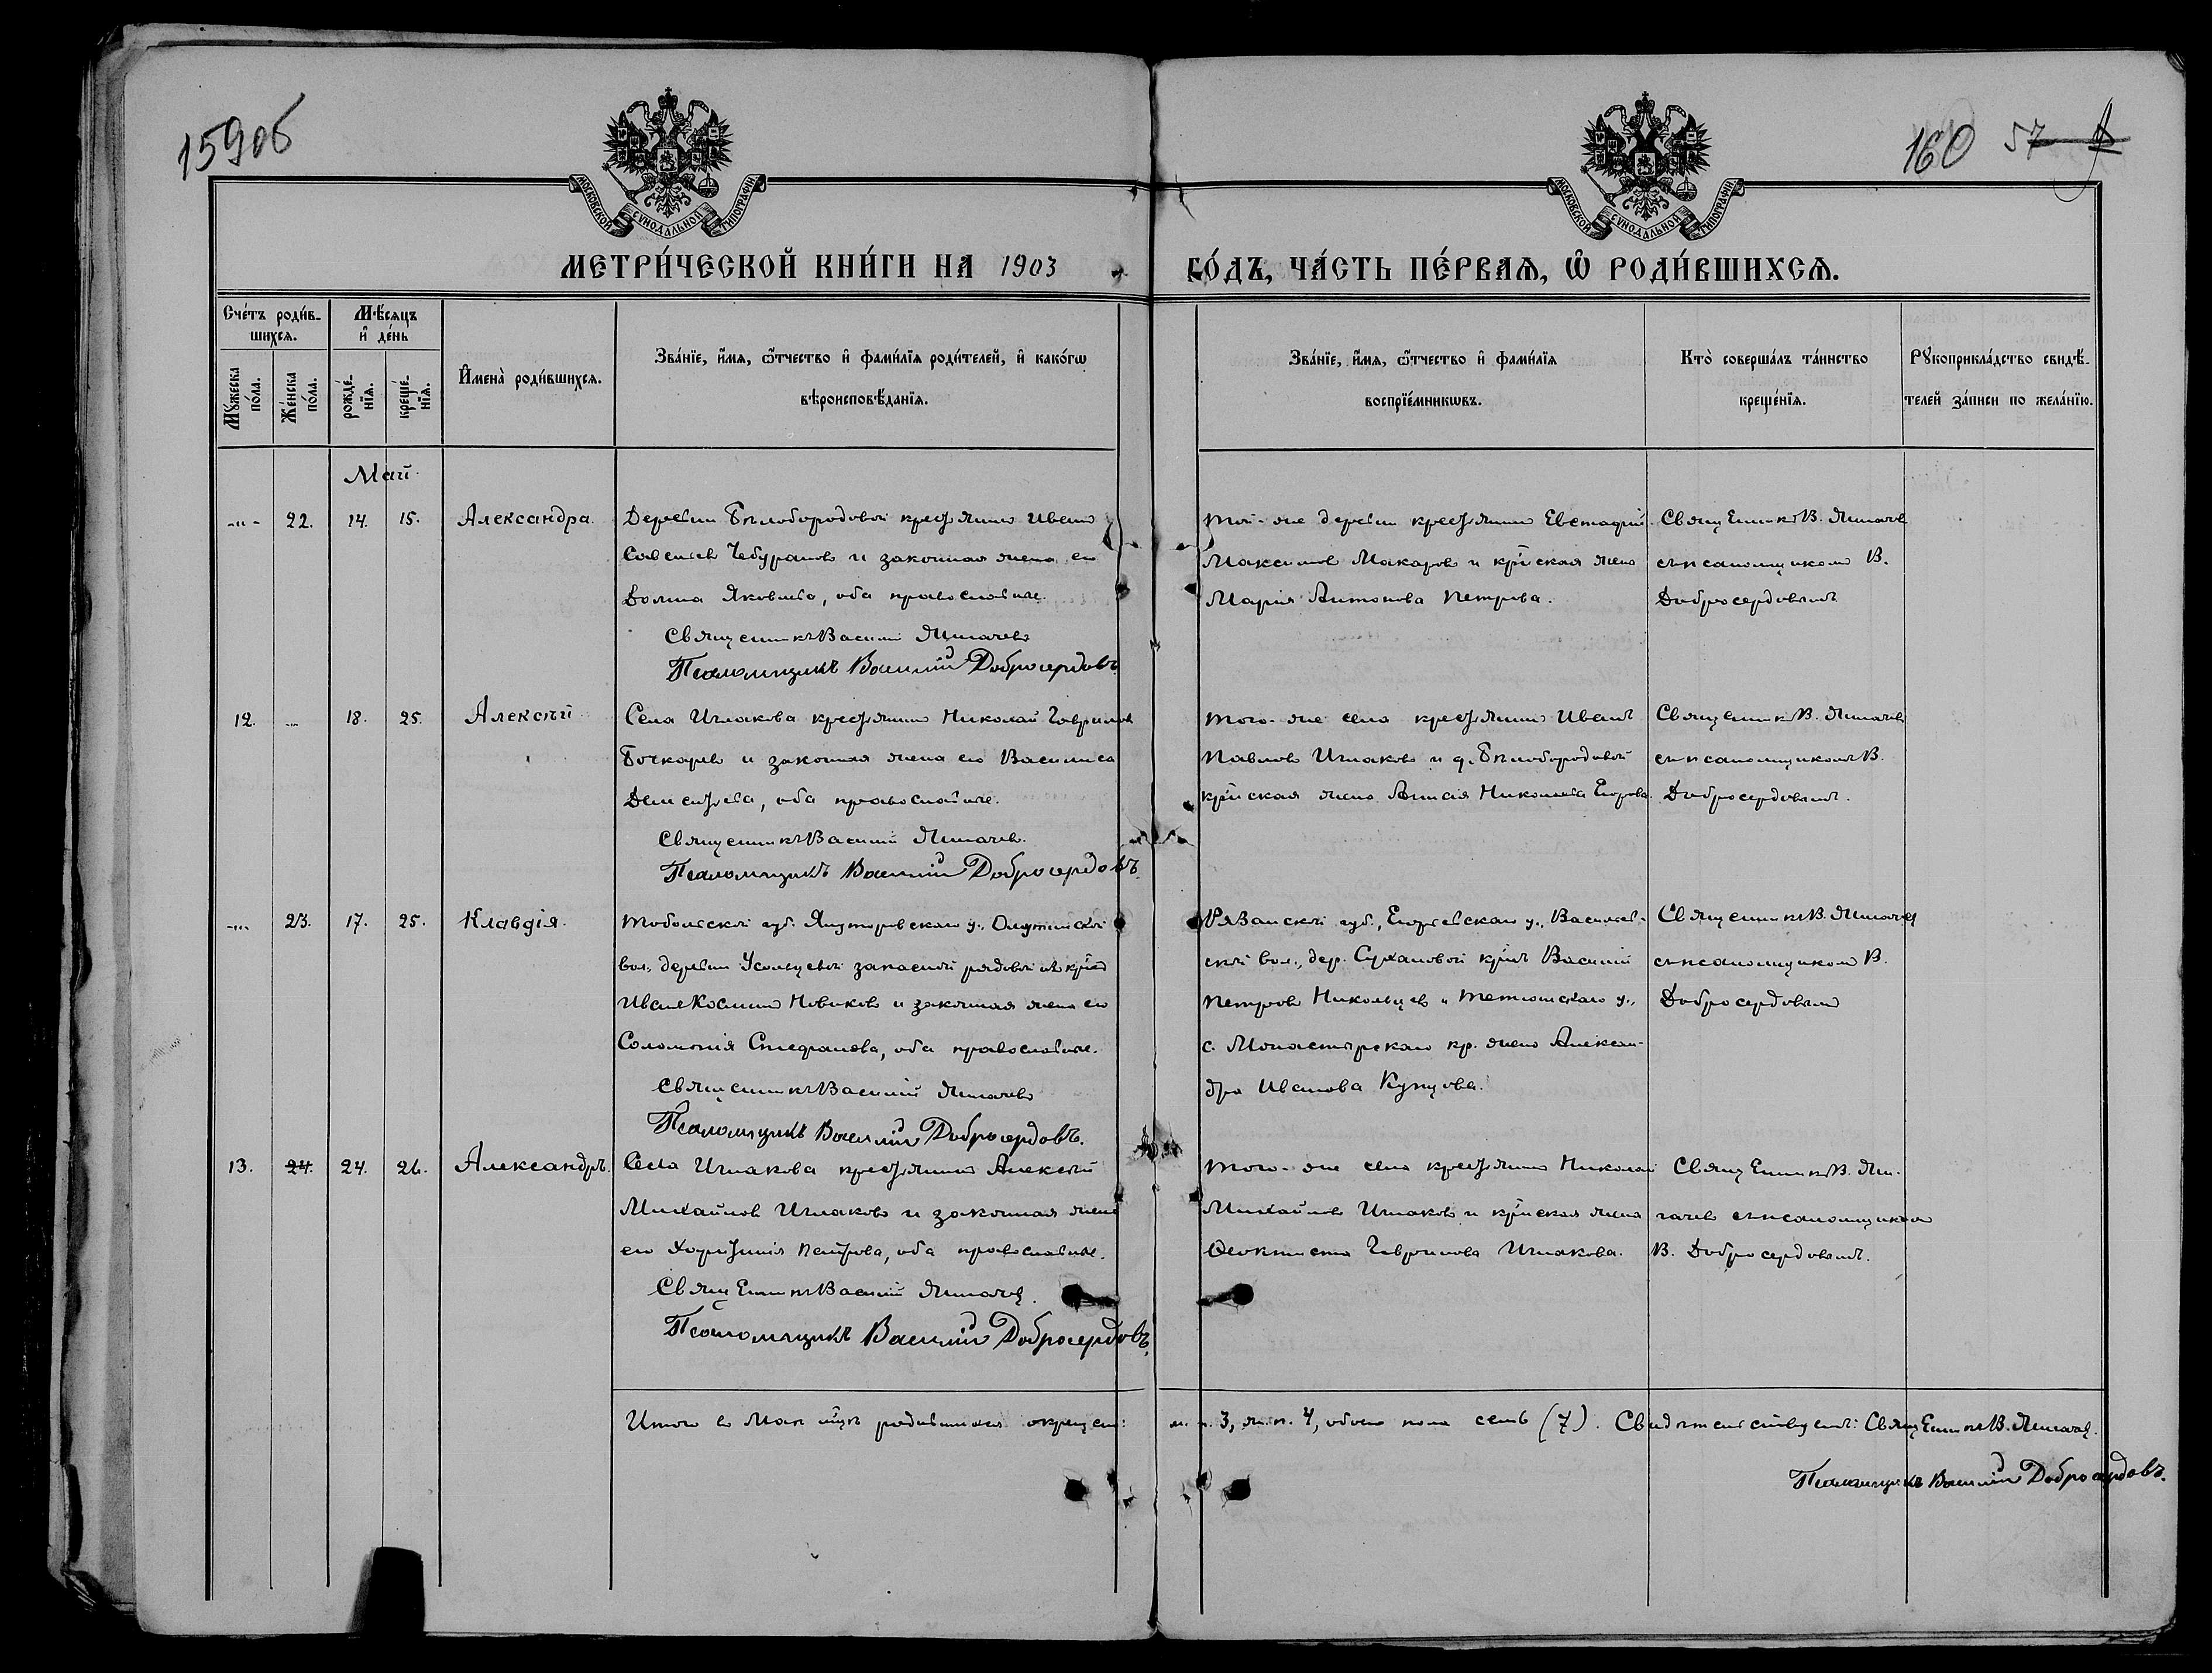 159об
160 57
МОСКОВСКОЙ СѴНОДАЛЬНОЙ ТИПОГРАФІИ
МОСКОВСКОЙ СѴНОДАЛЬНОЙ ТИПОГРАФІИ
МЕТРИ́ЧЕСКОЙ КНИ́ГИ НА 1903 ГО́ДЪ, ЧА́СТЬ ПЕ́РВАѦ, Ѡ РОДИ́ВШИХСѦ.
Сче́тъ роди́в-
шихсѧ.
Мꙋ́жеска
по́ла.
Же́нска
по́ла.
Мѣ́сѧцъ
и҆ де́нь
рожде́-
нїѧ.
креще́-
нїѧ.
И҆мена̀ роди́вшихсѧ.
Зва́нїе, и҆́мѧ, ѻ҆́тчество и҆ фами́лїѧ роди́телей, и҆ како́гѡ
вѣроисповѣ́данїѧ.
Зва́нїе, и҆́мѧ, ѻ҆́тчество и҆ фами́лїѧ
воспрїе́мникѡвъ.
Кто̀ соверша́лъ та́инство
креще́нїѧ.
Рꙋкоприкла́дство свидѣ́-
телей за́писи по жела́нїю.
Май
22. 14. 15. Александра.
Деревни Бѣлобородовой крестьянинъ Иванъ
Савельевъ Чебурановъ и законная жена его
Домна Яковлева, оба православные.
Священникъ Василій
Псаломщикъ Василій Добросердовъ.
Той-же деревни крестьянинъ Евстафій
Максимовъ Макаровъ и кр-нская жена
Марія Антонова Петрова.
Священникъ В.
съ псаломщикомъ В.
Добросердовымъ
12. 18. 25. Алексѣй
Села Ишакова крестьянинъ Николай Гавриловъ
Бочкаревъ и законная жена его Василиса
Дементьева, оба православные.
Священникъ Василій
Псаломщикъ Василій Добросердовъ.
Того-же села крестьянинъ Иванъ
Павловъ Ишаковъ и д. Бѣлобородовой
кр-нская жена Анисія Николаева Егорова.
Священникъ В.
съ псаломщикомъ В.
Добросердовымъ.
23. 17. 25. Клавдія.
Тобольской губ. Ялуторовскаго у., Омутинской
вол., деревни Усольцевой запасной рядовой изъ кр-нъ
Иванъ Косминъ Новиковъ и законная жена его
Соломонія Стефанова, оба православные.
Священникъ Василій
Псаломщикъ Василій Добросердовъ.
Рязанской губ., Егорьевскаго у., Василев-
ской вол., дер. Сухановой кр-нъ Василій
Петровъ Никольцевъ и Тетюшскаго у.,
с. Монастырскаго кр. жена Алексан-
дра Иванова Купцова.
Священникъ В.
съ псаломщикомъ В.
Добросердовымъ
13. 24. 24. 26. Александръ.
Села Ишакова крестьянинъ Алексѣй
Михайловъ Ишаковъ и законная жена
его Харитинія Петрова, оба православные.
Священникъ Василій
Псаломщикъ Василій Добросердовъ.
Того-же села крестьянинъ Николай
Михайловъ Ишаковъ и кр-нская жена
Ѳеоктиста Гаврилова Ишакова.
Священникъ В.
съ псаломщикомъ
В. Добросердовымъ.
Итого въ Маѣ м-цѣ родившихся окрещено: м. п. 3, ж. п. 4, обоего пола семь (7). Свидѣтельствуемъ: Священникъ В.
Псаломщикъ Василій Добросердовъ.